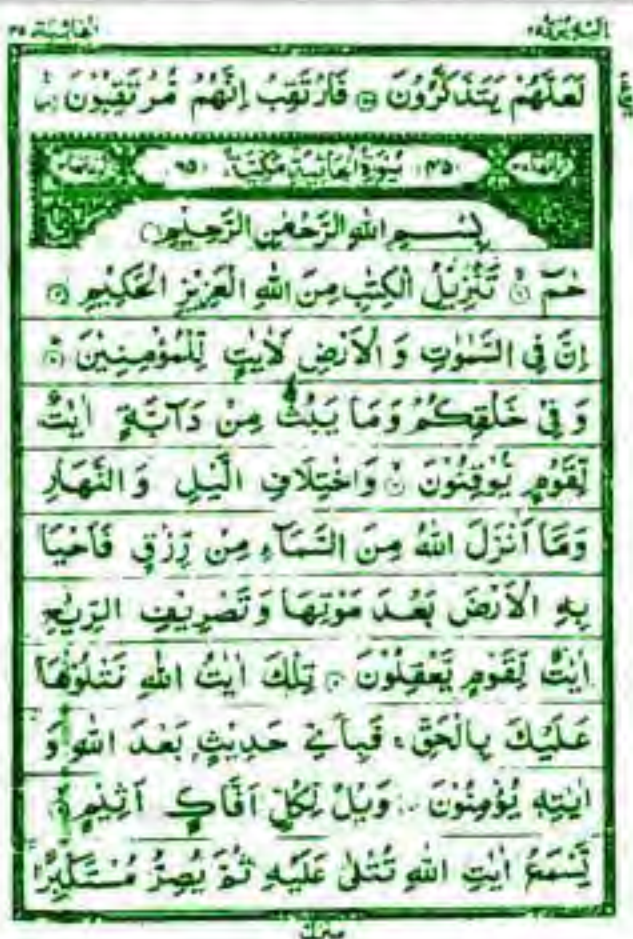 الجاثية ٤٥ اليه يرد ٢٥
لَعَلَّهُمْ يَتَذَكَّرُونَ ۝ فَارْتَقِبْ اِنَّهُمْ مُّرْتَقِبُوْنَ
(٤٥) سُوْرَةُ الْجَاثِيَةِ مَكِّيَّةٌ (٦٥)
بِسْمِ اللهِ الرَّحْمٰنِ الرَّحِيْمِ
حٰمٓ ۝ تَنْزِيْلُ الْكِتٰبِ مِنَ اللهِ الْعَزِيْزِ الْحَكِيْمِ ۝
اِنَّ فِي السَّمٰوٰتِ وَ الْاَرْضِ لَاٰيٰتٍ لِّلْمُؤْمِنِيْنَ ۝
وَ فِيْ خَلْقِكُمْ وَمَا يَبُثُّ مِنْ دَآبَّةٍ اٰيٰتٌ
لِّقَوْمٍ يُّوْقِنُوْنَ ۝ وَاخْتِلَافِ الَّيْلِ وَ النَّهَارِ
وَمَآ اَنْزَلَ اللهُ مِنَ السَّمَآءِ مِنْ رِّزْقٍ فَاَحْيَا
بِهِ الْاَرْضَ بَعْدَ مَوْتِهَا وَ تَصْرِيْفِ الرِّيٰحِ
اٰيٰتٌ لِّقَوْمٍ يَّعْقِلُوْنَ ۝ تِلْكَ اٰيٰتُ اللهِ نَتْلُوْهَا
عَلَيْكَ بِالْحَقِّ ۚ فَبِاَيِّ حَدِيْثٍۭ بَعْدَ اللهِ وَ
اٰيٰتِهٖ يُؤْمِنُوْنَ ۝ وَيْلٌ لِّكُلِّ اَفَّاكٍ اَثِيْمٍ ۝
يَّسْمَعُ اٰيٰتِ اللهِ تُتْلٰى عَلَيْهِ ثُمَّ يُصِرُّ مُسْتَكْبِرًا
منزل